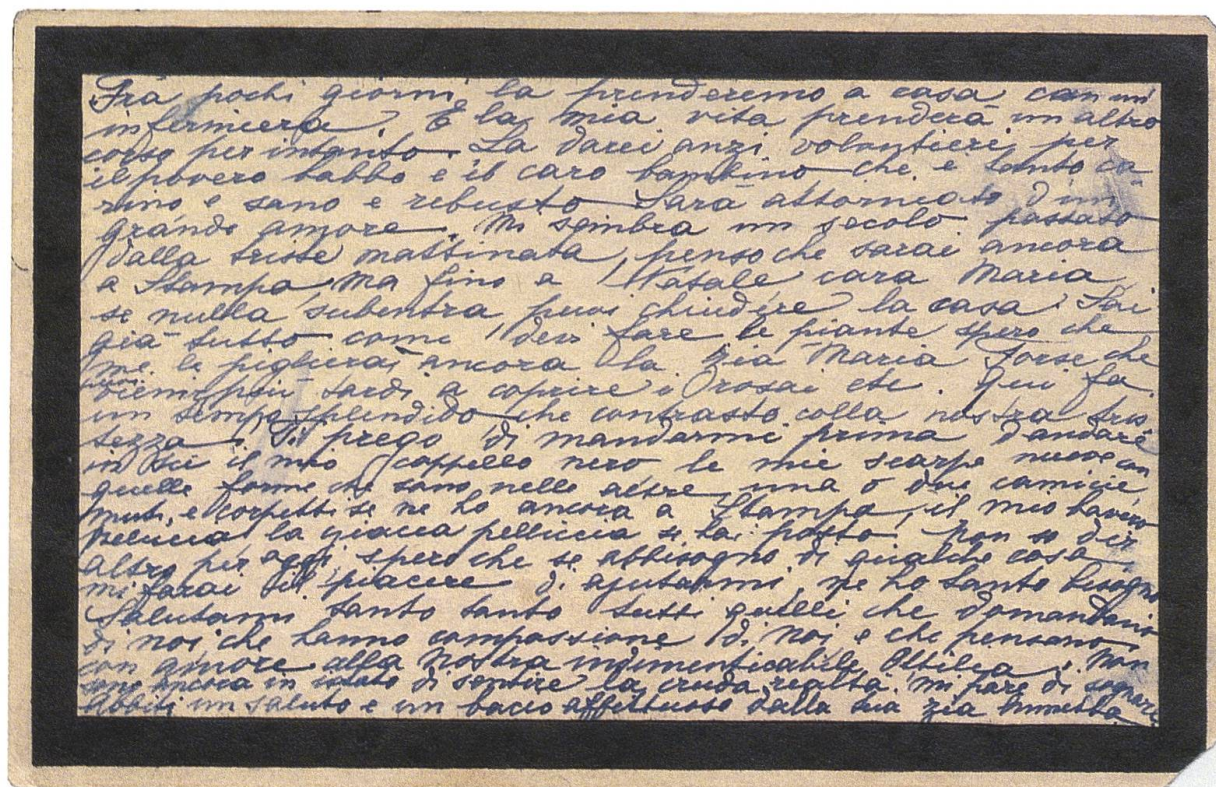 Frà pochi giorni la prenderemo a casa con un'
infermiera. E la mia vita prenderà un altro
corso per intanto. La darei anzi volontieri per
il povero babbo e il caro bambino che è tanto ca-
rino e sano e robusto. Sarà attorniato d'un
grande amore. Mi sembra un secolo passato
dalla triste mattinata, penso che sarai ancora
a Stampa ma fino a Natale cara Maria
se nulla subentra puoi chiudere la casa. Sai
già tutto come devi fare le piante spero che
me le piglierà ancora la zia Maria Forse che
vieni più tardi a coprire i rosai etc. Qui fa
un tempo splendido che contrasto colla nostra tris-
tezza. Ti prego di mandarmi prima d'andare
in il mio cappello nero le mie scarpe nuove con
quelle forme che sono nelle altre, una o due camicie,
muti, e corpetti se ne ho ancora a Stampa, il mio
pelliccia la giacca pelliccia se hai posto. Non so dir
altro per oggi spero che se abbisogno di qualche cosa
mi farai il piacere di ajutarmi, ne ho tanto bisogno
Salutami tanto tanto tutti quelli che domandano
di noi che hanno compassione di noi e che pensano
con amore alla nostra indimenticabile Ottilia. Non
sono ancora in stato di sentire la cruda realtà. mi pare di sognare.
Abbiti un saluto e un bacio affettuoso dalla tua zia